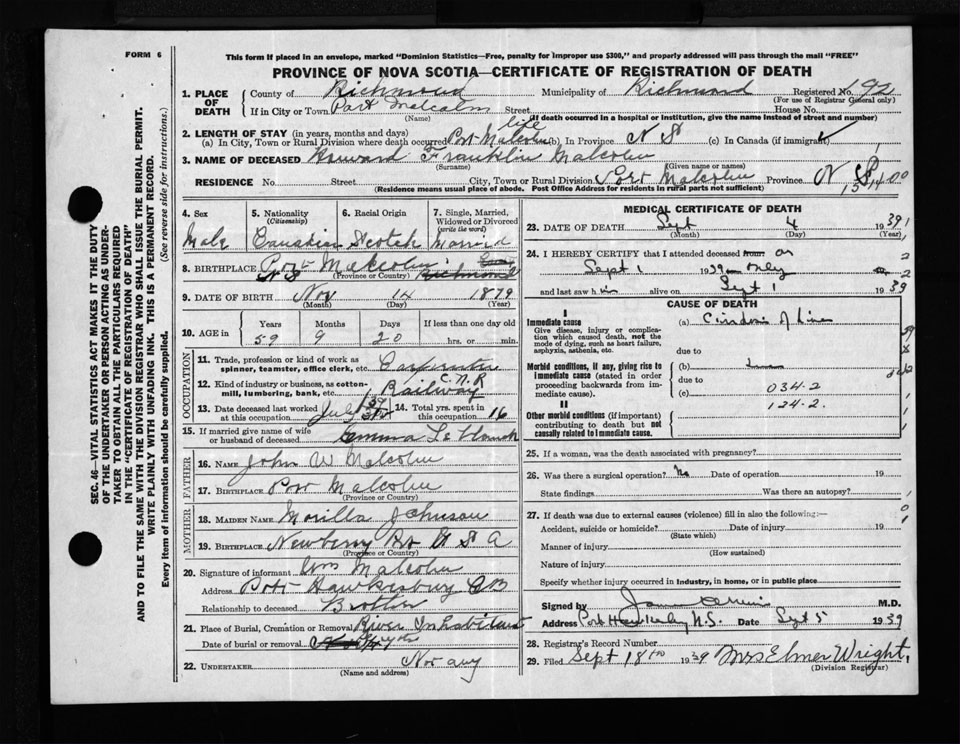 FORM 6
This form if placed in an envelope, marked "Dominion Statistics—Free, penalty for improper use $300," and properly addressed will pass through the mail "FREE"
PROVINCE OF NOVA SCOTIA—CERTIFICATE OF REGISTRATION OF DEATH
SEC. 46—VITAL STATISTICS ACT MAKES IT THE DUTY
OF THE UNDERTAKER OR PERSON ACTING AS UNDER-
TAKER TO OBTAIN ALL THE PARTICULARS REQUIRED
IN THE "CERTIFICATE OF REGISTRATION OF DEATH"
AND TO FILE THE SAME WITH THE DIVISION REGISTRAR WHO SHALL ISSUE THE BURIAL PERMIT.
WRITE PLAINLY WITH UNFADING INK. THIS IS A PERMANENT RECORD.
Every item of information should be carefully supplied. (See reverse side for instructions)
1. PLACE OF DEATH
County of Richmond Municipality of Richmond Registered No. 92
(For use of Registrar General only)
If in City or Town Port Malcolm Street House No.
(Name) (If death occurred in a hospital or institution, give the name instead of street and number)
2. LENGTH OF STAY (in years, months and days) life
(a) In City, Town or Rural Division where death occurred Port Malcolm (b) In Province N S (c) In Canada (if immigrant)
3. NAME OF DECEASED Howard Franklin Malcolm
(Surname) (Given name or names)
RESIDENCE No. Street City, Town or Rural Division Port Malcolm Province N S
(Residence means usual place of abode. Post Office Address for residents in rural parts not sufficient)
4. Sex
Male
5. Nationality
(Citizenship)
Canadian
6. Racial Origin
Scotch
7. Single, Married,
Widowed or Divorced
(write the word)
Married
8. BIRTHPLACE Port Malcolm
N S (Province or Country) Richmond
9. DATE OF BIRTH Nov 14 1879
(Month) (Day) (Year)
10. AGE in Years Months Days If less than one day old
59 9 20 hrs. or min.
OCCUPATION
11. Trade, profession or kind of work as
spinner, teamster, office clerk, etc. Carpenter
12. Kind of industry or business, as cotton-
mill, lumbering, bank, etc. Railway C.N.R
13. Date deceased last worked
at this occupation July 39
14. Total yrs. spent in
this occupation 16
15. If married give name of wife
or husband of deceased Emma
FATHER
16. NAME John W Malcolm
17. BIRTHPLACE Port Malcolm
(Province or Country)
MOTHER
18. MAIDEN NAME Morilla Johnson
19. BIRTHPLACE Newberry U S A
(Province or Country)
20. Signature of informant Wm Malcolm
Address Port Hawkesbury CB
Relationship to deceased Brother
21. Place of Burial, Cremation or Removal River Inhabitants
Date of burial or removal
22. UNDERTAKER Not any
(Name and address)
MEDICAL CERTIFICATE OF DEATH
23. DATE OF DEATH Sept 4 1939
(Month) (Day) (Year)
24. I HEREBY CERTIFY that I attended deceased on
Sept 1 1939 only
and last saw him alive on Sept 1 1939
CAUSE OF DEATH
I
Immediate cause (a) Cirrhosis of Liver
Give disease, injury or complica-
tion which caused death, not the
mode of dying, such as heart failure,
asphyxia, asthenia, etc. due to
Morbid conditions, if any, giving rise to
immediate cause (stated in order
proceeding backwards from im-
mediate cause). (b)
due to
(c) 034.2
124.2
II
Other morbid conditions (if important)
contributing to death but not
causally related to immediate cause.
25. If a woman, was the death associated with pregnancy?
26. Was there a surgical operation? No Date of operation 19
State findings Was there an autopsy?
27. If death was due to external causes (violence) fill in also the following:—
Accident, suicide or homicide? Date of injury 19
(State which)
Manner of injury
(How sustained)
Nature of injury
Specify whether injury occurred in industry, in home, or in public place
Signed by M.D.
Address Port Hawkesbury N.S. Date Sept 5 1939
28. Registrar's Record Number
29. Filed Sept 18th 1939 Mrs Elmer Wright
(Division Registrar)